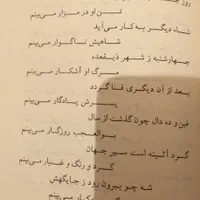 روز
تن او در مزار می‌بینم
شاه دیگر به کار می‌آید
شاهیش ناگوار می‌بینم
چهارشنبه ز شهر ذیقعده
مرگ او آشکار می‌بینم
بعد از آن دیگری فنا گردد
پسرش یادگار می‌بینم
غین و ده دال چون گذشت از سال
بوالعجب روزگار می‌بینم
گرد آئینه است سیر جهان
گرد و زنگ و غبار می‌بینم
شه چو بیرون رود ز جایگهش
می‌بینم